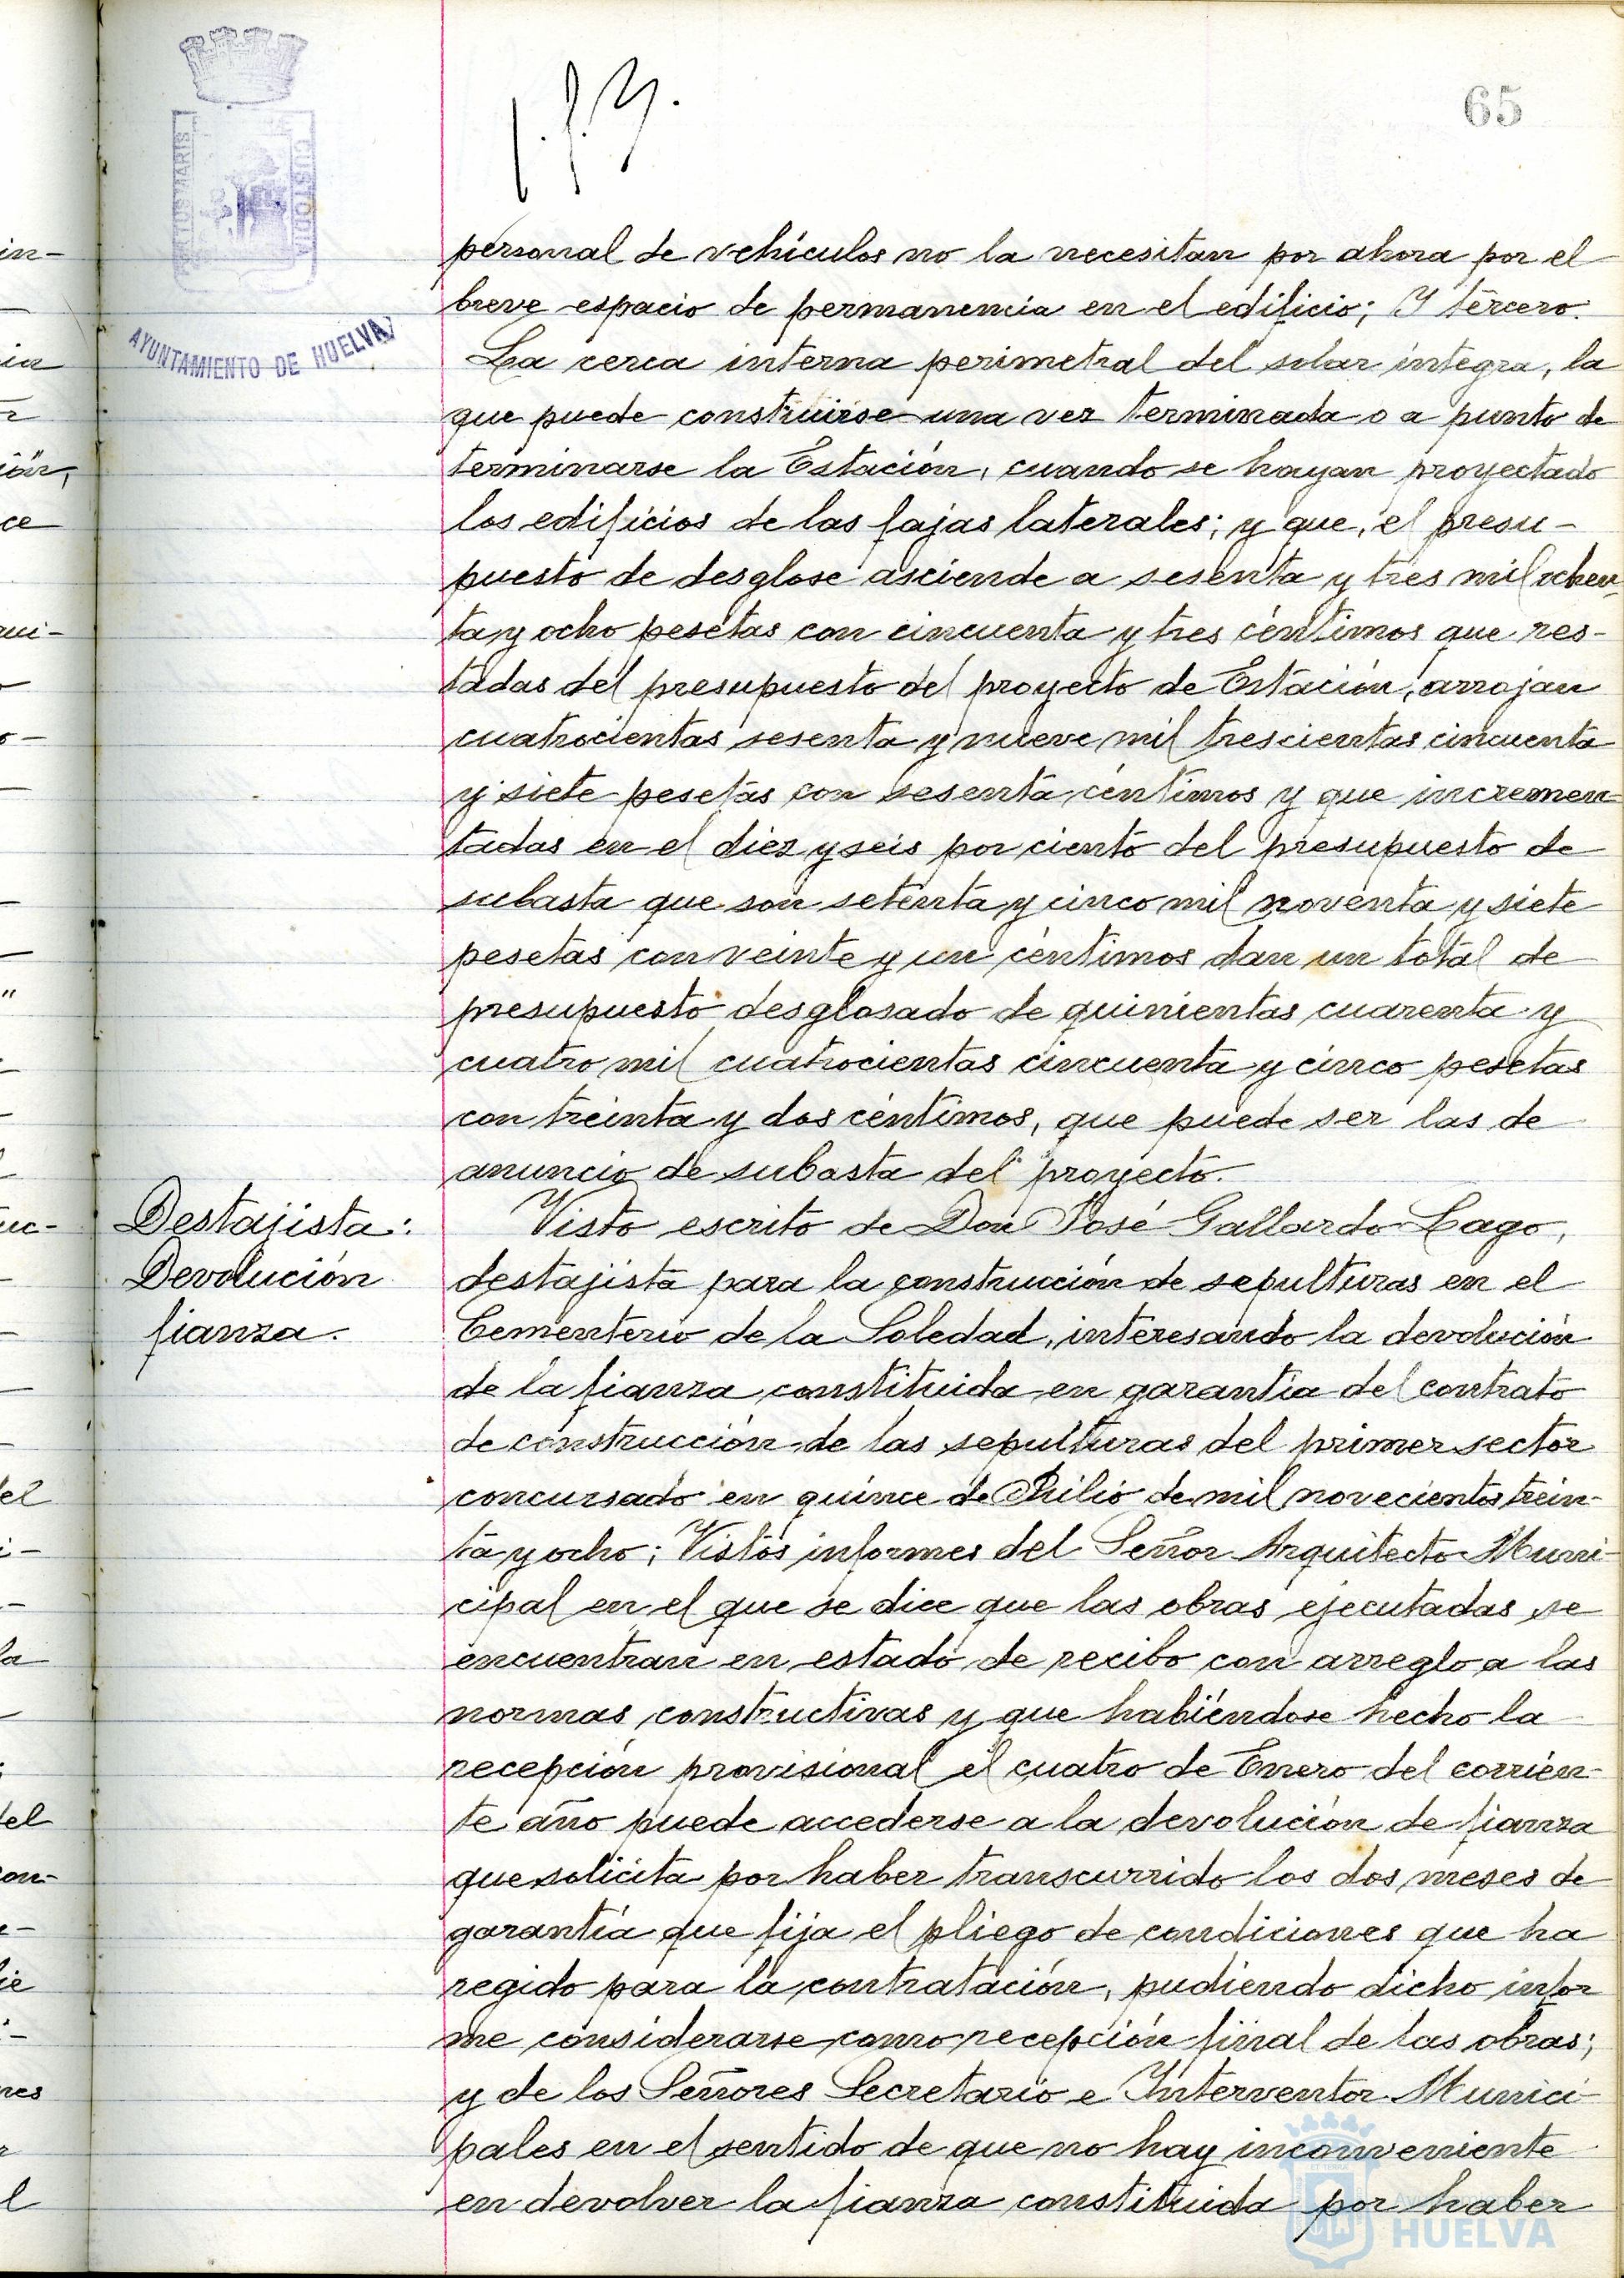 65
PORTUS MARIS
CUSTODIA
AYUNTAMIENTO DE HUELVA
personal de vehículos no la necesitan por ahora por el
breve espacio de permanencia en el edificio; Y tercero.
La cerca interna perimetral del solar integra, la
que puede construirse una vez terminada o a punto de
terminarse la Estación, cuando se hayan proyectado
los edificios de las fajas laterales; y que, el presu-
puesto de desglose asciende a sesenta y tres mil ochen-
ta y ocho pesetas con cincuenta y tres céntimos que res-
tadas del presupuesto del proyecto de Estación, arrojan
cuatrocientas sesenta y nueve mil trescientas cincuenta
y siete pesetas con sesenta céntimos y que incremen-
tadas en el diez y seis por ciento del presupuesto de
subasta que son setenta y cinco mil noventa y siete
pesetas con veinte y un céntimos dan un total de
presupuesto desglosado de quinientas cuarenta y
cuatro mil cuatrocientas cincuenta y cinco pesetas
con treinta y dos céntimos, que puede ser las de
anuncio de subasta del proyecto.
Destajista:
Devolución
fianza.
Visto escrito de Don José Gallardo Lago,
destajista para la construcción de sepulturas en el
Cementerio de la Soledad, interesando la devolución
de la fianza constituida en garantía del contrato
de construcción de las sepulturas del primer sector
concursado en quince de Julio de mil novecientos trein-
ta y ocho; Vistos informes del Señor Arquitecto Muni-
cipal en el que se dice que las obras ejecutadas se
encuentran en estado de recibo con arreglo a las
normas constructivas y que habiéndose hecho la
recepción provisional el cuatro de Enero del corrien-
te año puede accederse a la devolución de fianza
que solicita por haber transcurrido los dos meses de
garantía que fija el pliego de condiciones que ha
regido para la contratación, pudiendo dicho infor
me considerarse como recepción final de las obras;
y de los Señores Secretario e Interventor Munici-
pales en el sentido de que no hay inconveniente
en devolver la fianza constituida por haber
HUELVA